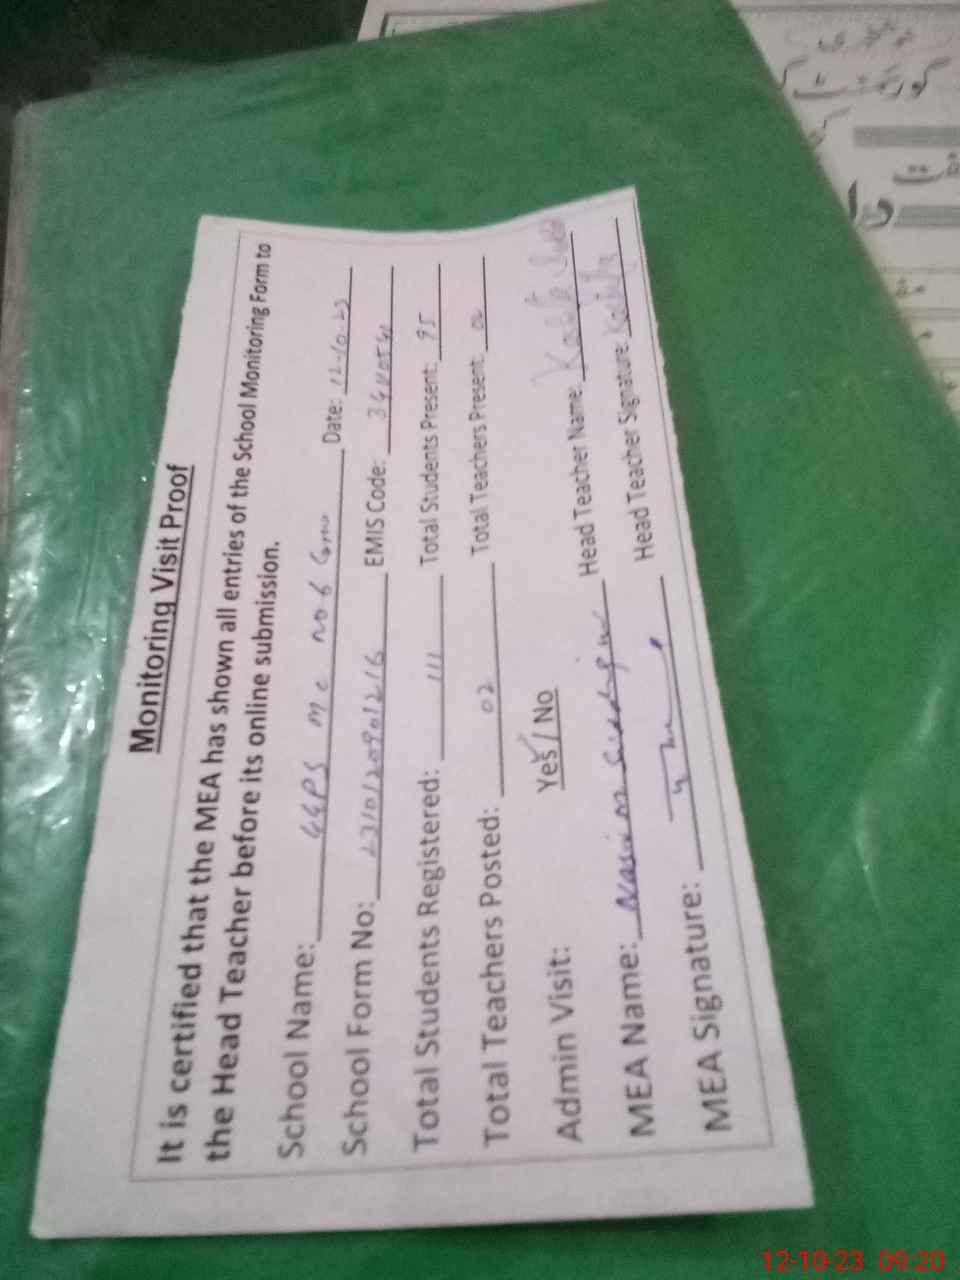 Monitoring Visit Proof
It is certified that the MEA has shown all entries of the School Monitoring Form to
the Head Teacher before its online submission.
School Name: GGPS M C No 6 Date: 12-10-23
School Form No: 2310120901216 EMIS Code:
Total Students Registered: 111 Total Students Present: 95
Total Teachers Posted: 02 Total Teachers Present: 02
Admin Visit: Yes / No
MEA Name: Head Teacher Name:
MEA Signature: Head Teacher Signature:
12-10-23 09:20